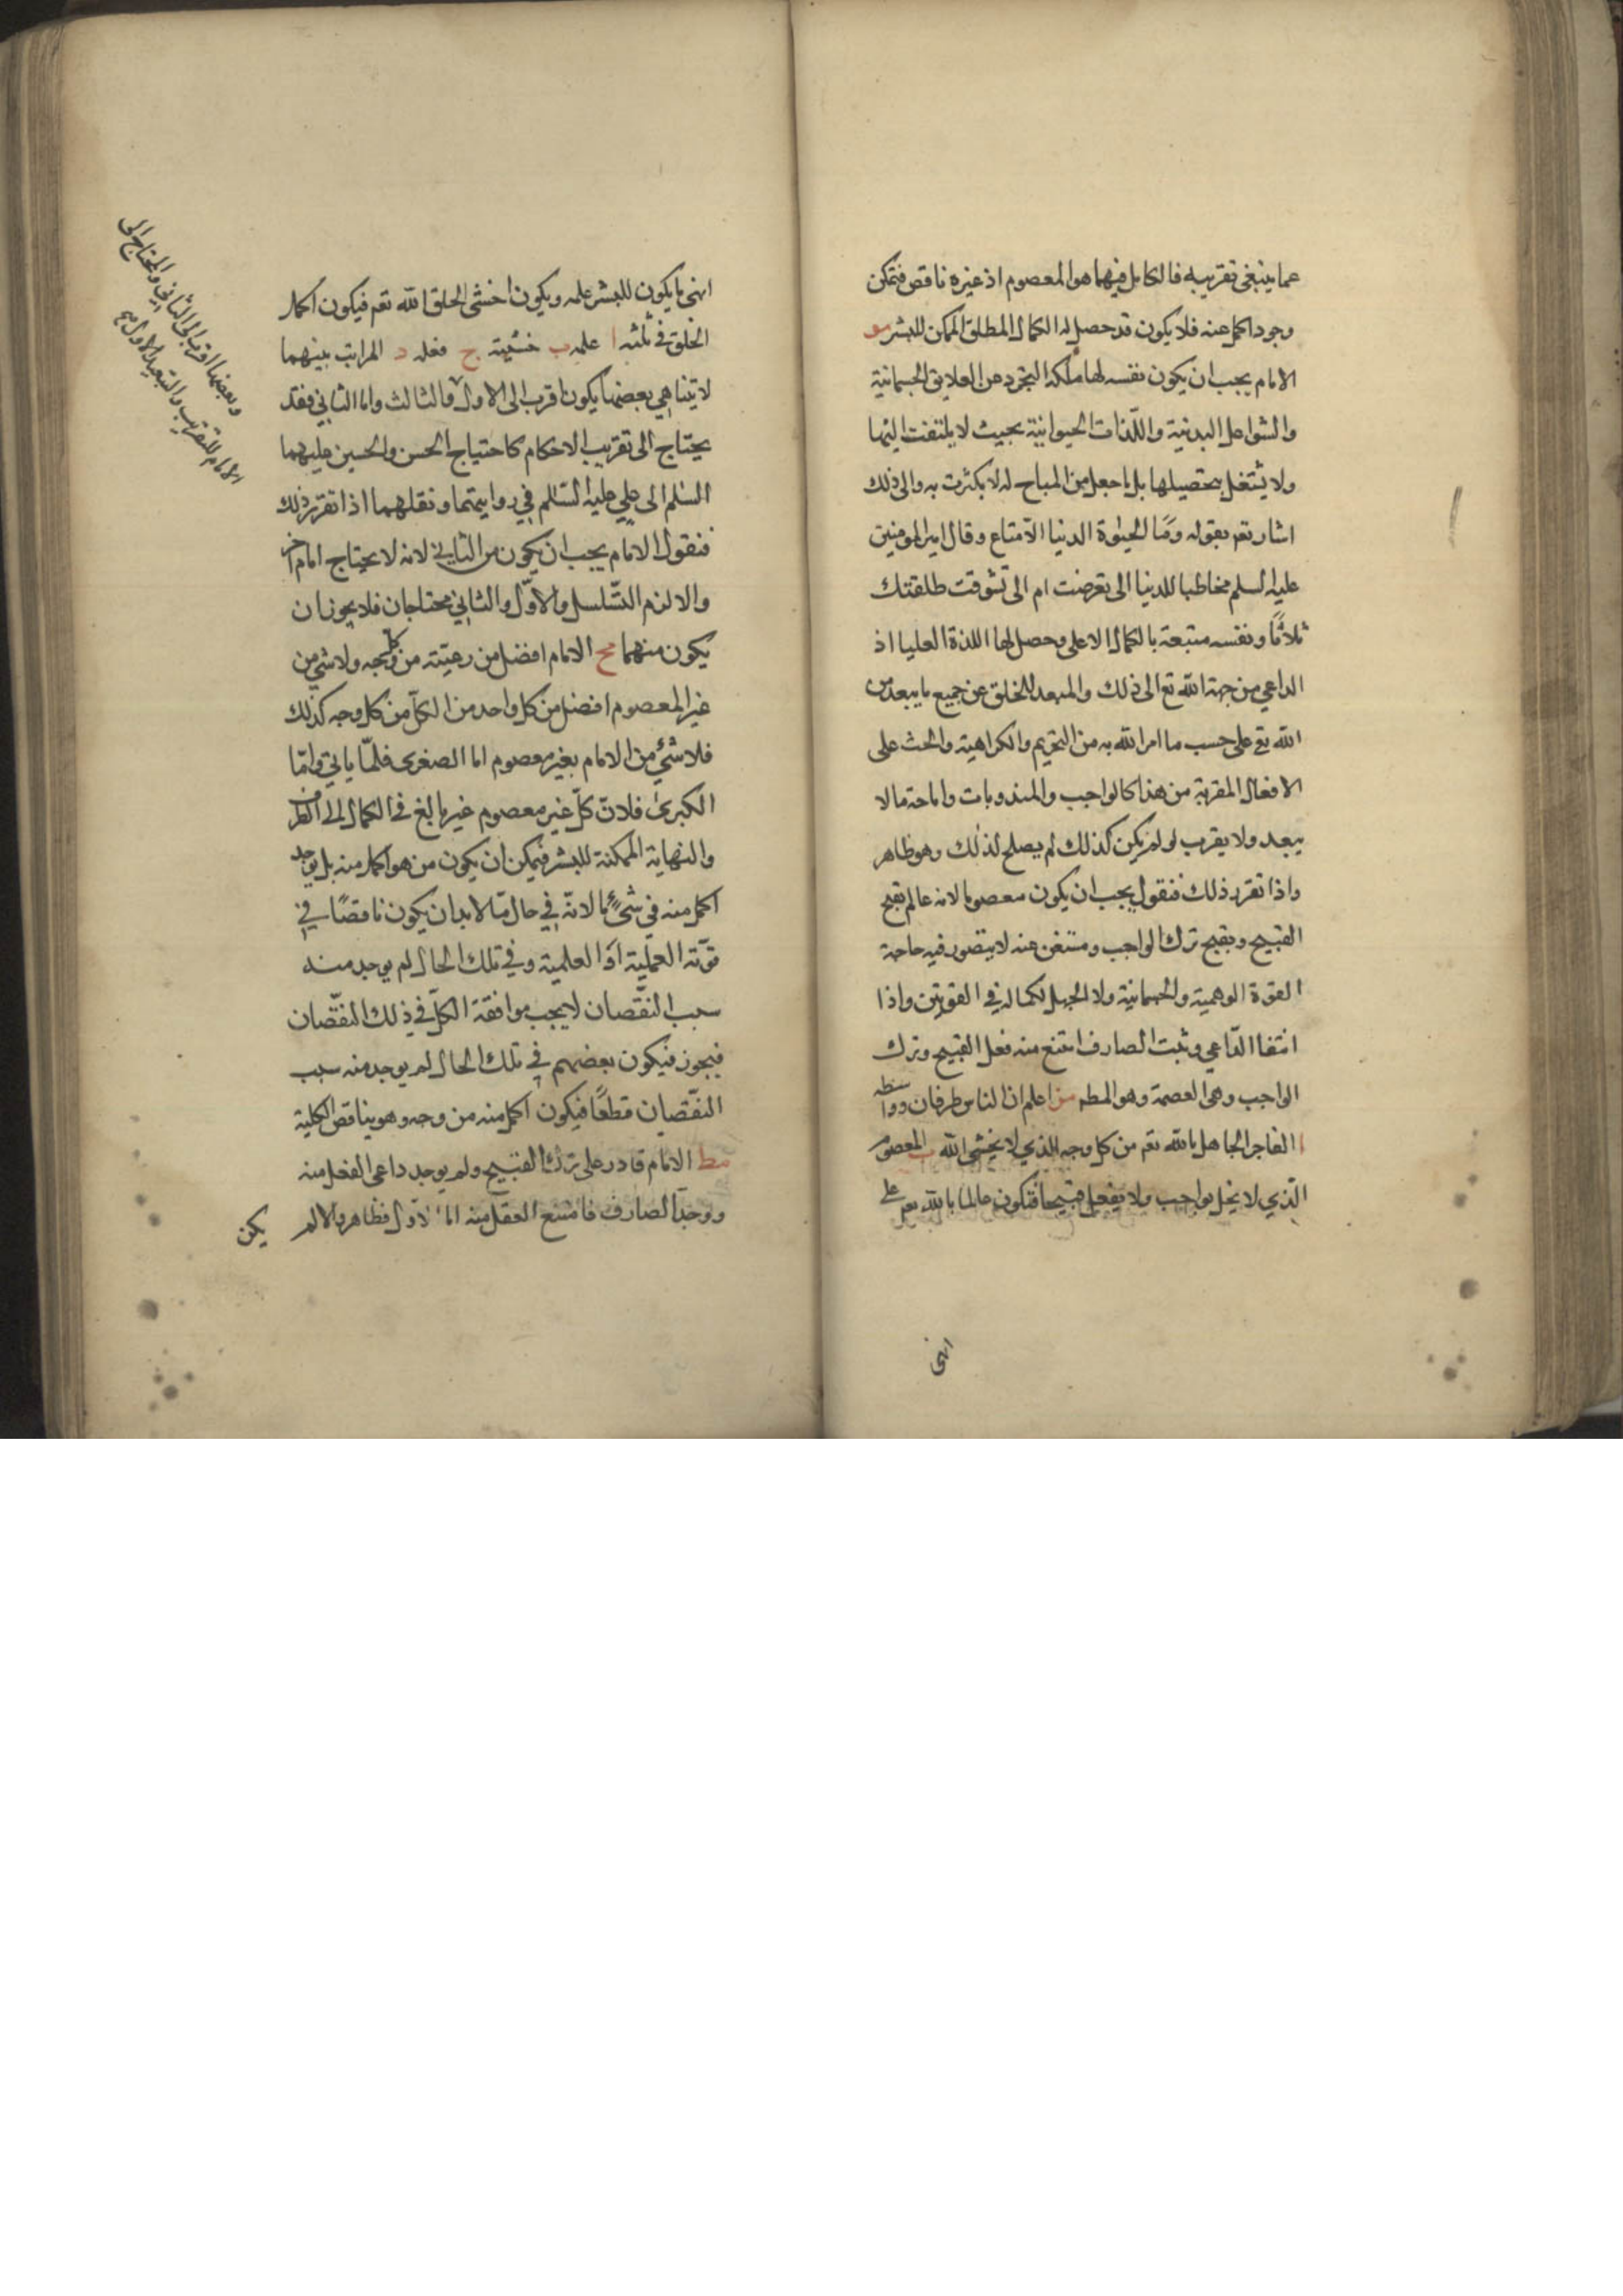 عما ينبغي تقريبه فالكامل فيهما هو المعصوم اذ غيره ناقص فتمكن
وجود اكمل عنه فلا يكون قد حصل له الكمال المطلق الممكن للبشر مو
الامام يجب ان يكون نفسه لها ملكة التجرد عن العلايق الجسمانية
والشواغل البدنية واللذات الحيوانية بحيث لا يلتفت اليها
ولا يشتغل بتحصيلها بل ما جعل من المباح له لا يكثرث به والى ذلك
اشار تعم بقوله وَمَا الحيوة الدنيا الا متاع وقال امير المومنين
عليه السلم مخاطبا للدنيا الى تعرضت ام الى تشوقت طلقتك
ثلاثًا ونفسه متبعة بالكمال الاعلى وحصل لها اللذة العليا اذ
الداعي من جهة الله تع الى ذلك والمبعد للخلق عن جميع ما يبعد من
الله تع على حسب ما امر الله به من التحريم والكراهية والحث على
الافعال المقربة من هذا كالواجب والمندوبات واباحة ما لا
يبعد ولا يقرب لو لم يكن كذلك لم يصلح لذلك وهو ظاهر
واذا تقرر ذلك فنقول يجب ان يكون معصوما لانه عالم بقبح
القبيح وبقبح ترك الواجب ومستغن عنه لا يتصور فيه حاجة
القوة الوهمية والجسمانية ولا الجهل لكماله في القوتين واذا
انتفا الداعي وثبت الصارف امتنع منه فعل القبيح وترك
الواجب وهي العصمة وهو المطم مز اعلم ان الناس طرفان وواسطه
ا الفاجر الجاهل بالله تعم من كل وجه الذي لا يخشى الله ب المعصوم
الّذي لا يخل بواجب ولا يفعل قبيحا فتكون عالما بالله تعم على
انهى
انهى ما يكون للبشر علمه ويكون اخشى الخلق الله تعم فيكون اكمل
الخلق في ثلثه ا علمه ب خشيته ج فعله د المراتب بينهما
لا يتناهي بعضها يكون اقرب الى الاول والثالث واما الثاني فقد
يحتاج الى تقريب الاحكام كاحتياج الحسن والحسين عليهما
السلم الى علي عليه السّلم في روايتهما ونقلهما اذا تقرر ذلك
فنقول الامام يجب ان يكون من الثاني لانه لا يحتاج امام اخر
والا لزم التّسلسل والاوّل والثاني محتاجان فلا يجوز ان
يكون منهما مح الامام افضل من رعيّته من كل وجه ولا شي من
غير المعصوم افضل من كل واحد من الكلّ من كل وجه كذلك
فلا شئ من الامام بغير معصوم اما الصغرى فلمّا ياتي وامّا
الكبرى فلانّ كلّ غير معصوم غير بالغ في الكمال الى الطرف
والنهاية الممكنة للبشر فيمكن ان يكون من هو اكمل منه بل يوجد
اكمل منه في شئ ما لانّه في حال مّا لا بد ان يكون ناقصًا في
قوّته العمليّة او العلمية وفي تلك الحال لم يوجد منه
سبب النقّصان لا يجب موافقة الكلّ في ذلك النقّصان
فيجوز فيكون بعضهم في تلك الحال لم يوجد منه سبب
النقّصان قطعًا فيكون اكمل منه من وجه وهو يناقض الكلية
مط الامام قادر على ترك القبيح ولم يوجد داعي الفعل منه
ووجد الصارف فامتنع الفعل منه اما الاول فظاهر والا لم
يكن
وبعضها اقرب الى الثاني والمحتاج الى
الامام للتقريب والتبعيد الاول